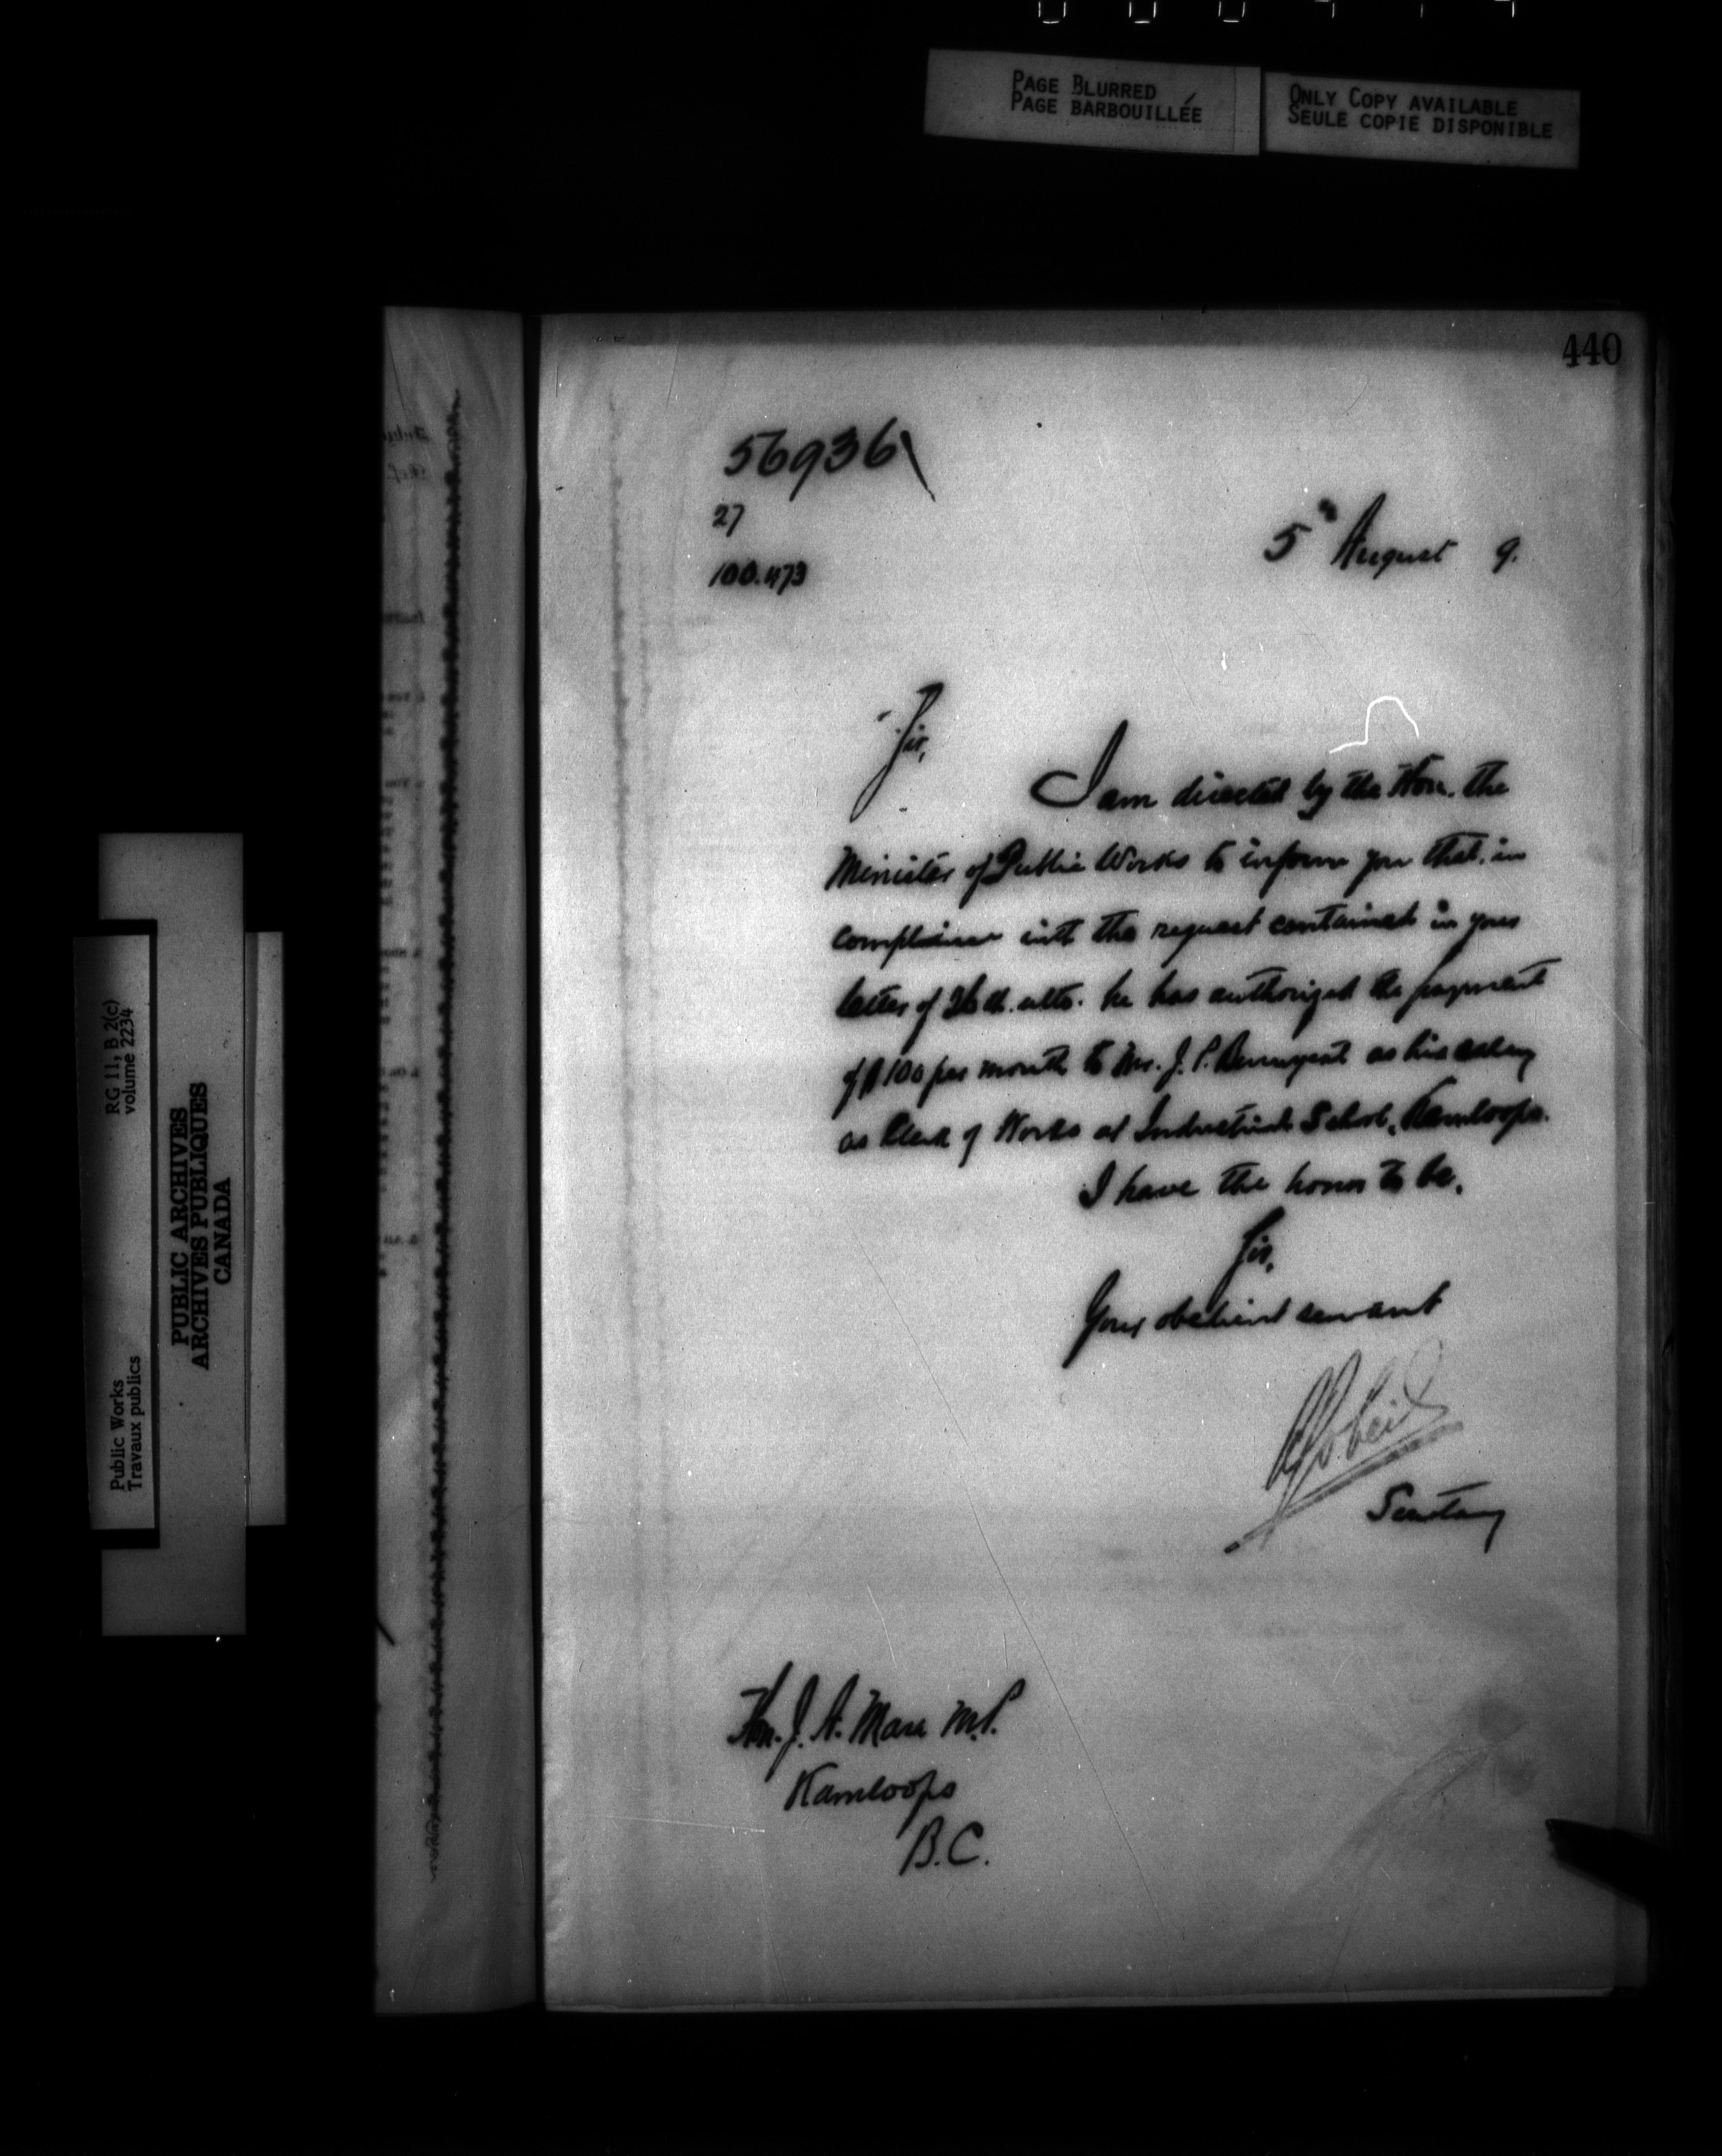 PAGE BLURRED
PAGE BARBOUILLÉE
ONLY COPY AVAILABLE
SEULE COPIE DISPONIBLE
440
56936
27
100.473
5th August 9.
Sir,
I am directed by the Hon. the
Minister of Public Works to inform you that, in
compliance with the request contained in your
letter of 26th. ulto. he has authorized the payment
of $100 per month to Mr. J. P. as his salary
as Clerk of Works at Industrial School, Kamloops.
I have the honor to be,
Sir,
Your obedient servant
Secretary
Hon. J. A. Mara M.P.
Kamloops
B.C.
RG 11, B 2(c)
volume 2234
Public Works
Travaux publics
PUBLIC ARCHIVES
ARCHIVES PUBLIQUES
CANADA